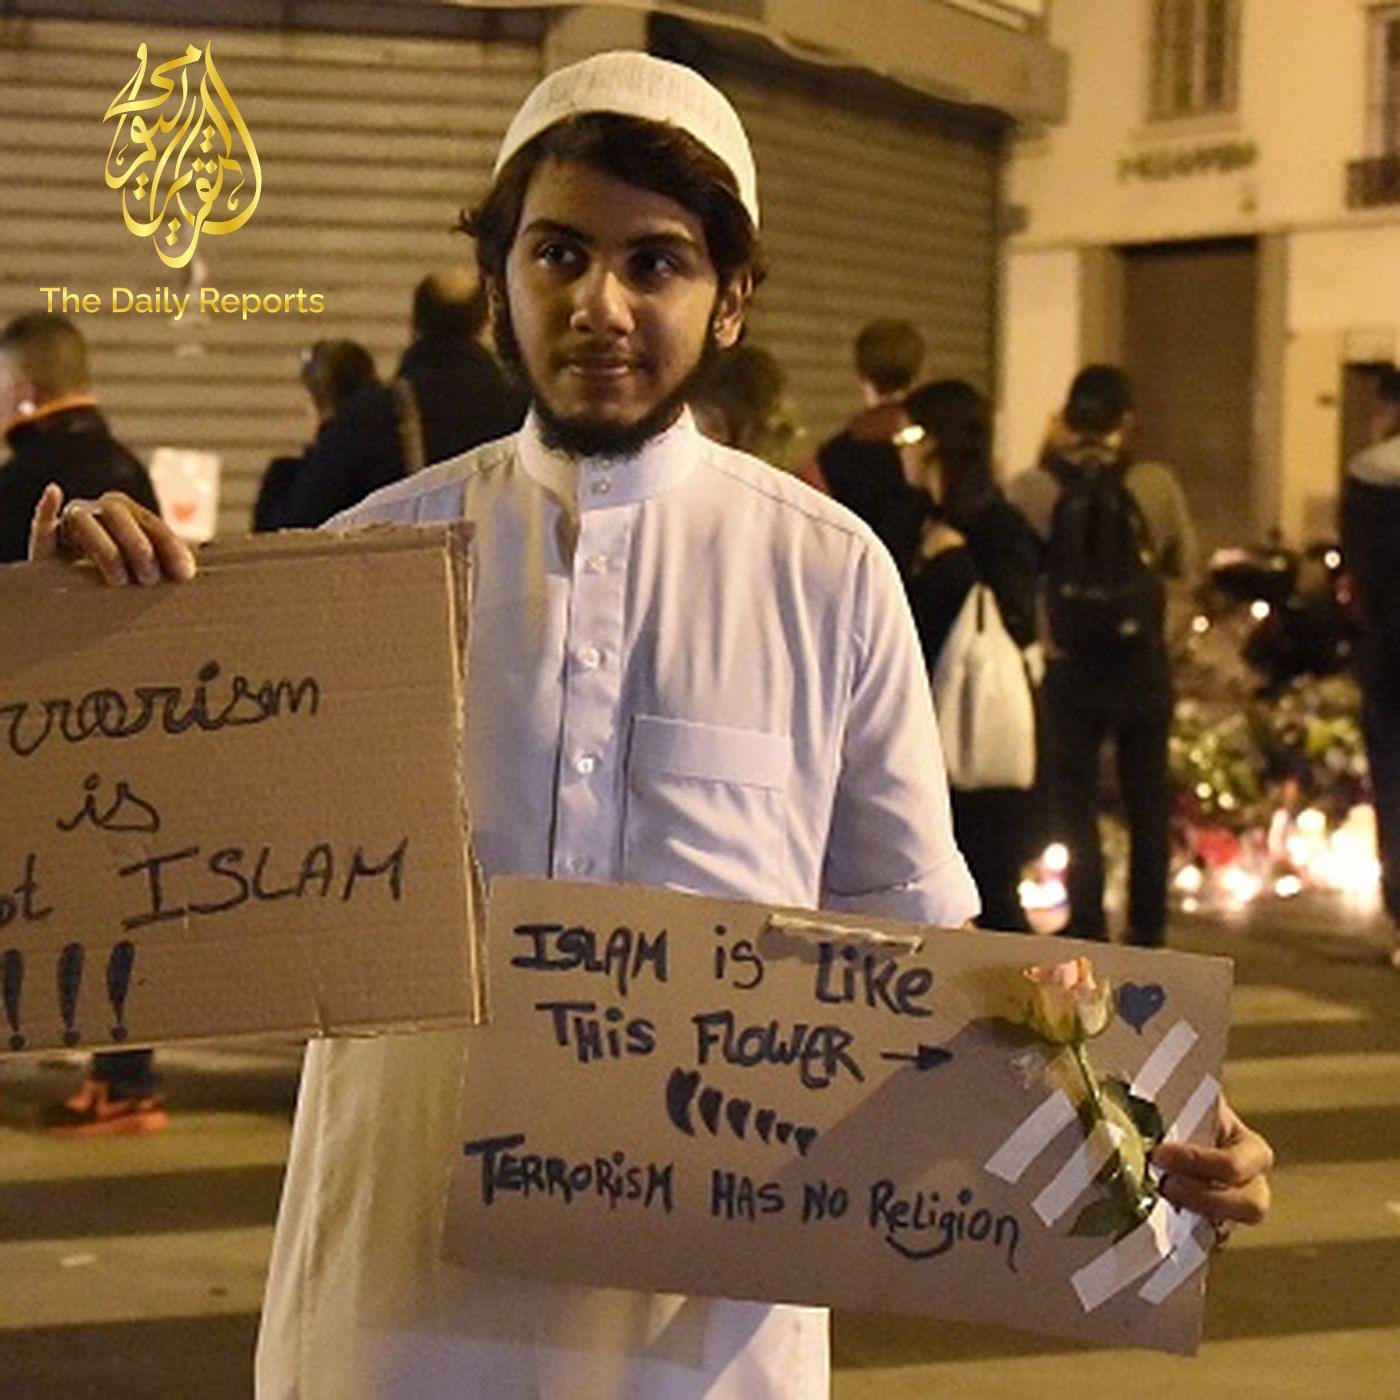 The Daily Reports
rrorism
is
ot ISLAM
!!!
ISLAM is Like
THis FLOWER →
TERRORiSM HAS NO Religion